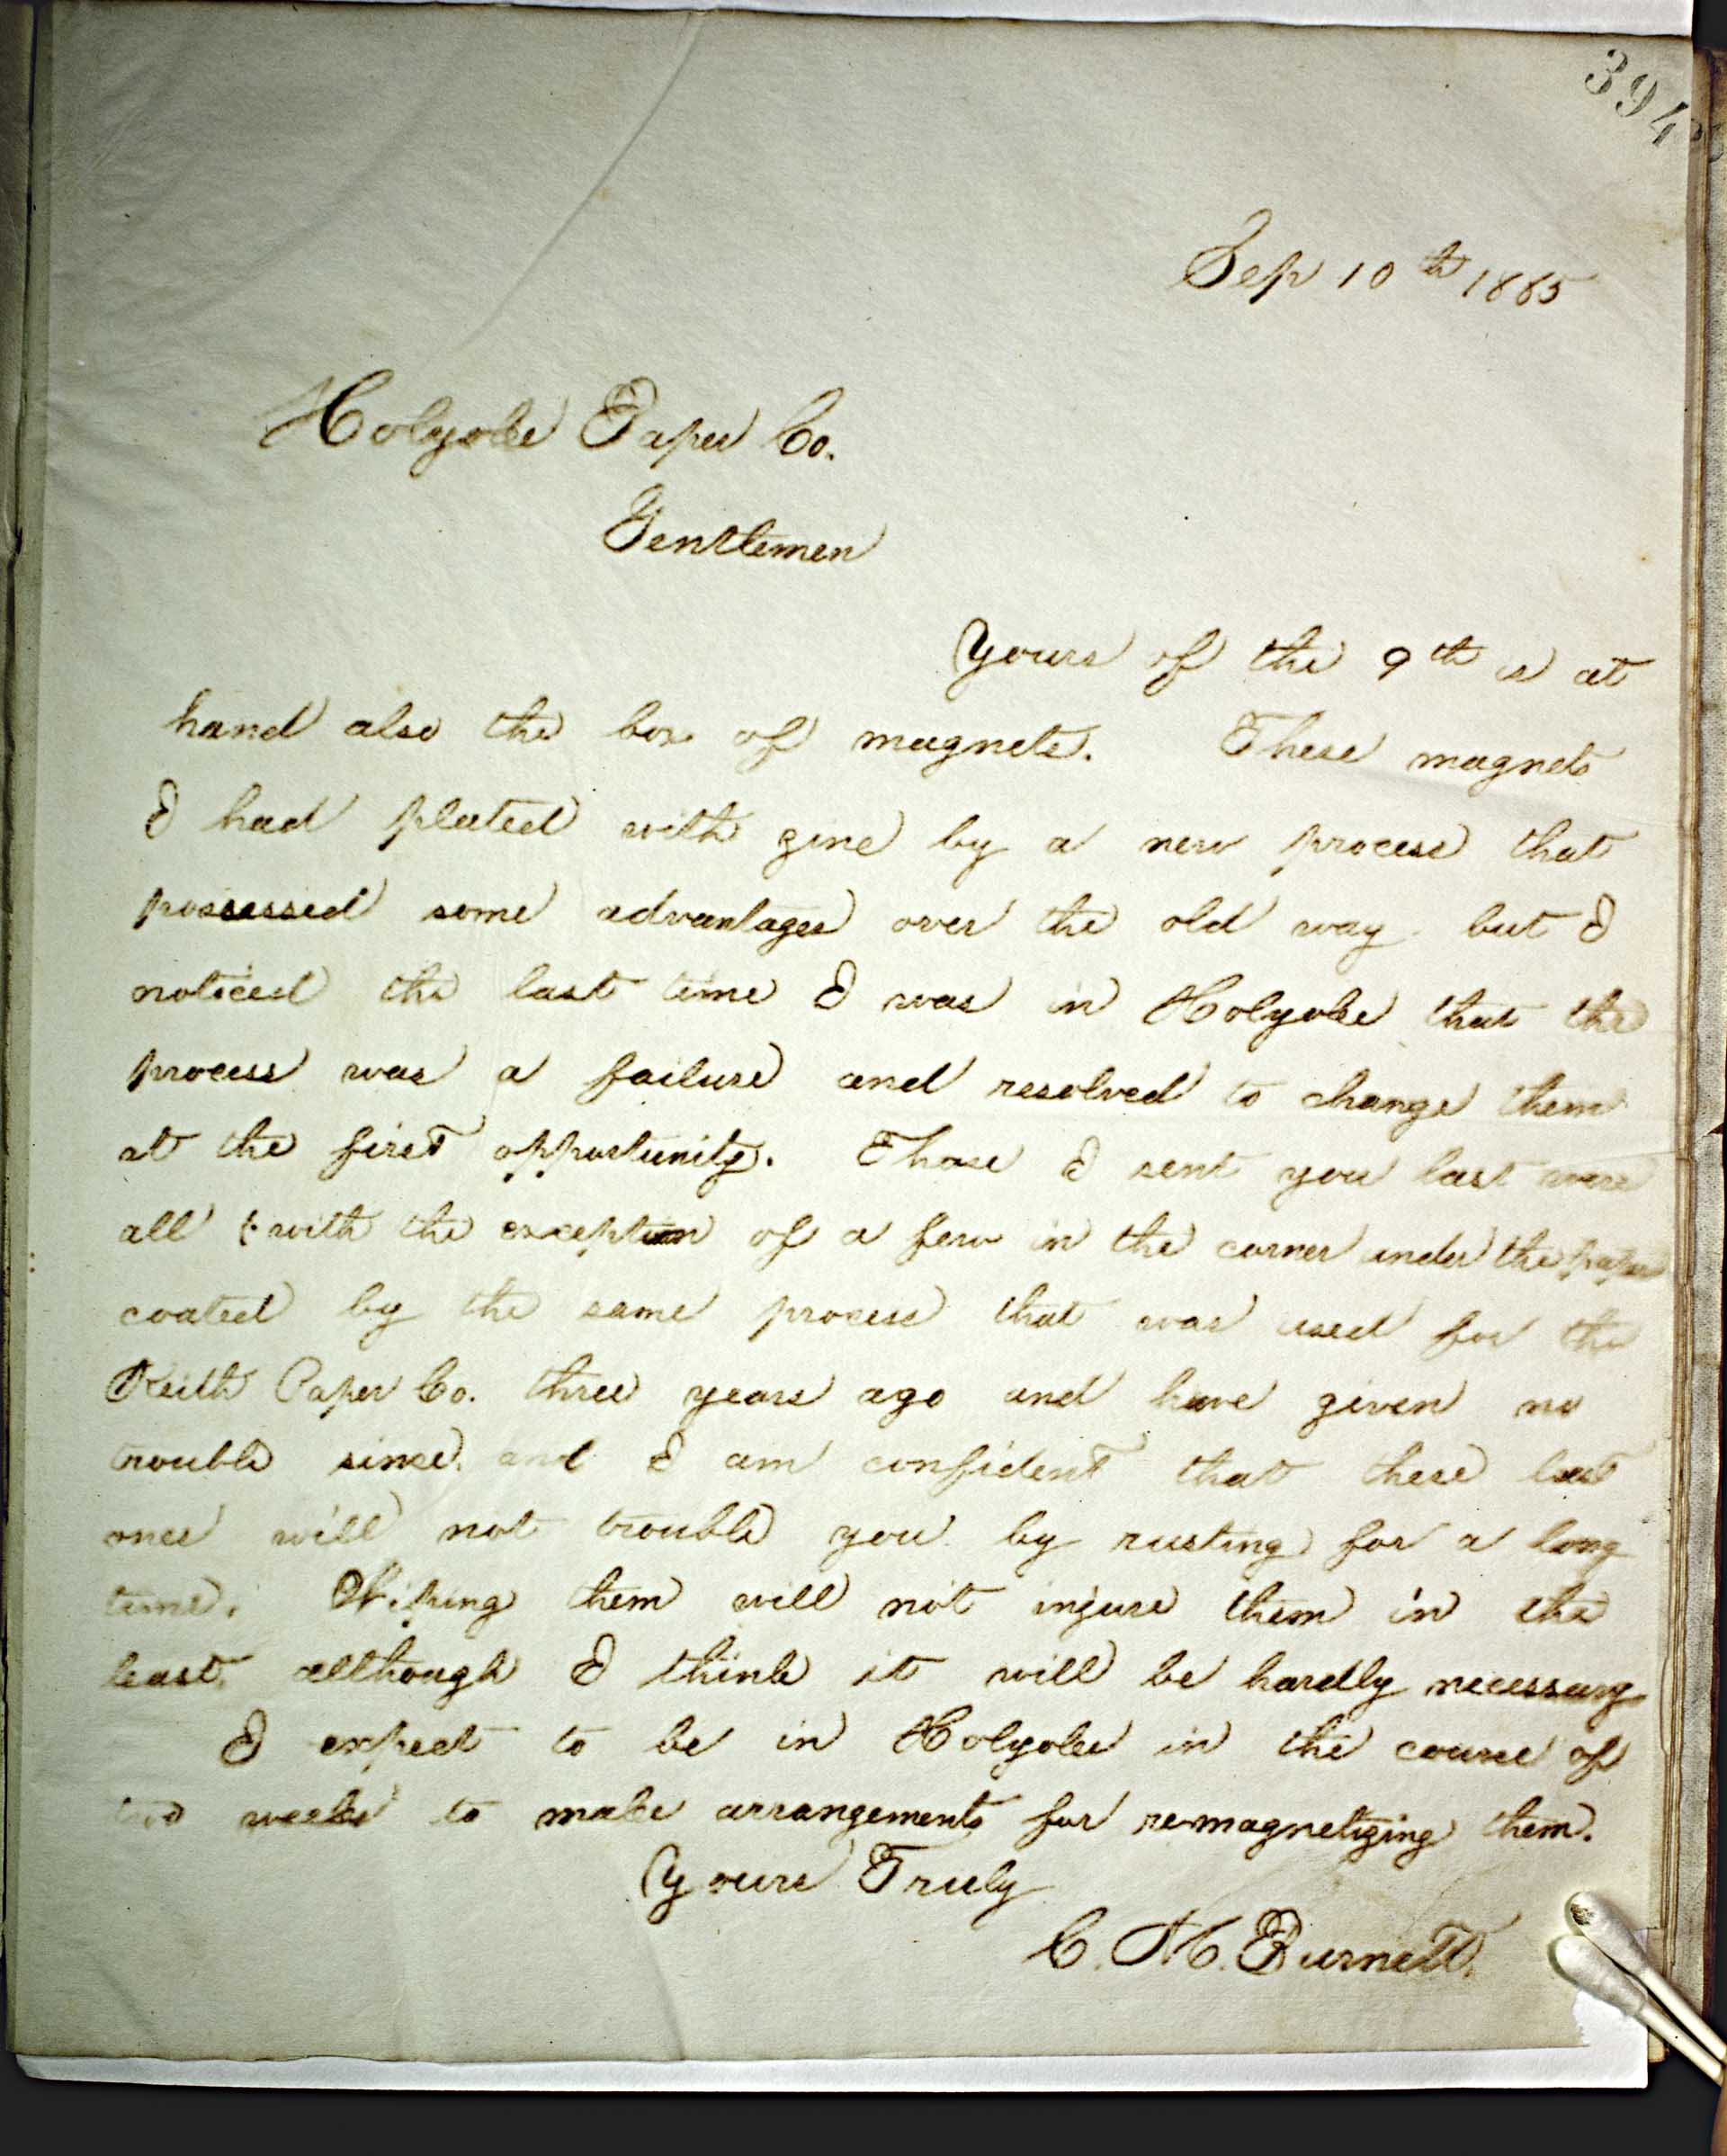 394
Sep 10th 1885
Holyoke Paper Co.
Gentlemen
Yours of the 9th is at
hand also the box of magnets. These magnets
I had plated with zinc by a new process that
possessed some advantages over the old way but I
noticed the last time I was in Holyoke that the
process was a failure and resolved to change them
at the first opportunity. Those I sent you last were
all (with the exception of a few in the corner under the paper
coated by the same process that was used for the
Keith Paper Co. three years ago and have given no
trouble since. and I am confident that these last
ones will not trouble you by rusting for a long
time. Wiping them will not injure them in the
least. although I think it will be hardly necessary
I expect to be in Holyoke in the course of
two weeks to make arrangements for re-magnetizing them.
Yours Truly
C. H. Burnett.